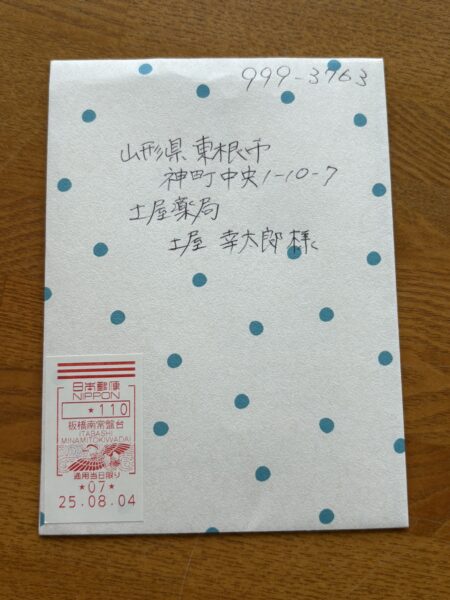 999-3763
山形県東根市
神町中央1-10-7
土屋薬局
土屋 幸太郎 様
日本郵便
NIPPON
★110
板橋南常盤台
ITABASHI
MINAMITOKIWADAI
適用当日限り
★07★
25.08.04